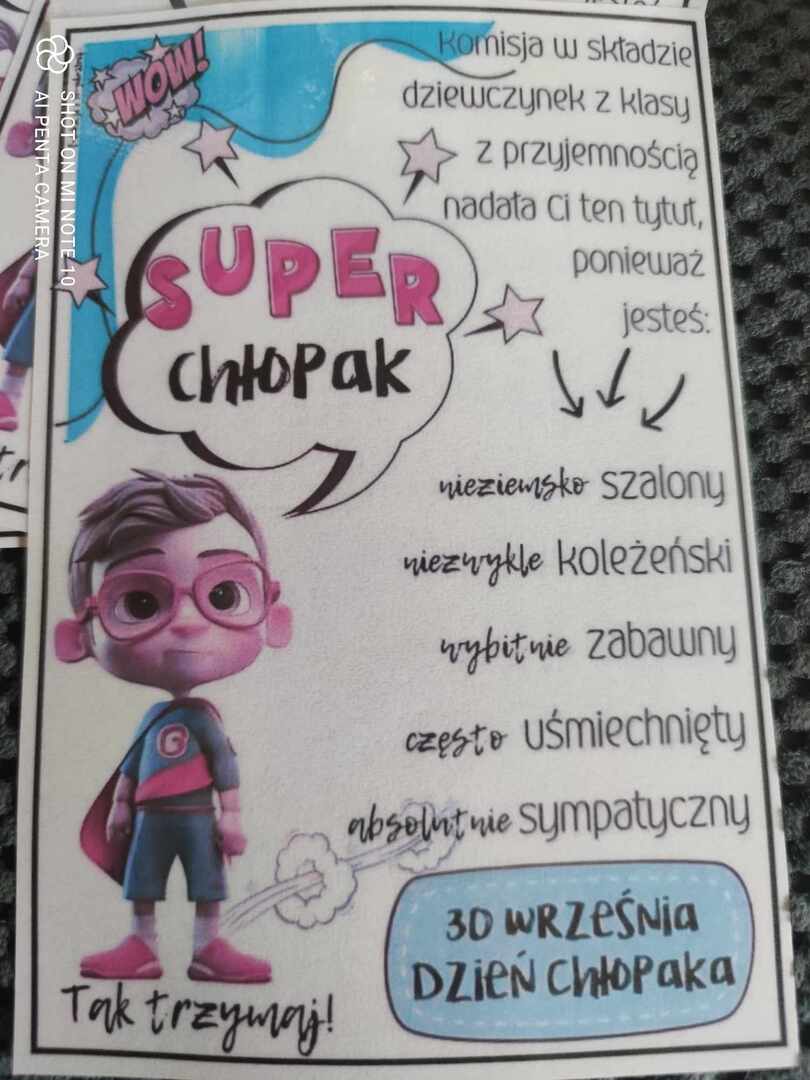 WOW!
Komisja w składzie
dziewczynek z klasy
z przyjemnością
nadała Ci ten tytuł,
ponieważ
jesteś:
SUPER
chłopak
nieziemsko szalony
niezwykle koleżeński
wybitnie zabawny
często uśmiechnięty
absolutnie sympatyczny
G
30 WRZEŚNIA
DZIEŃ CHŁOPAKA
Tak trzymaj!
SHOT ON MI NOTE 10
AI PENTA CAMERA